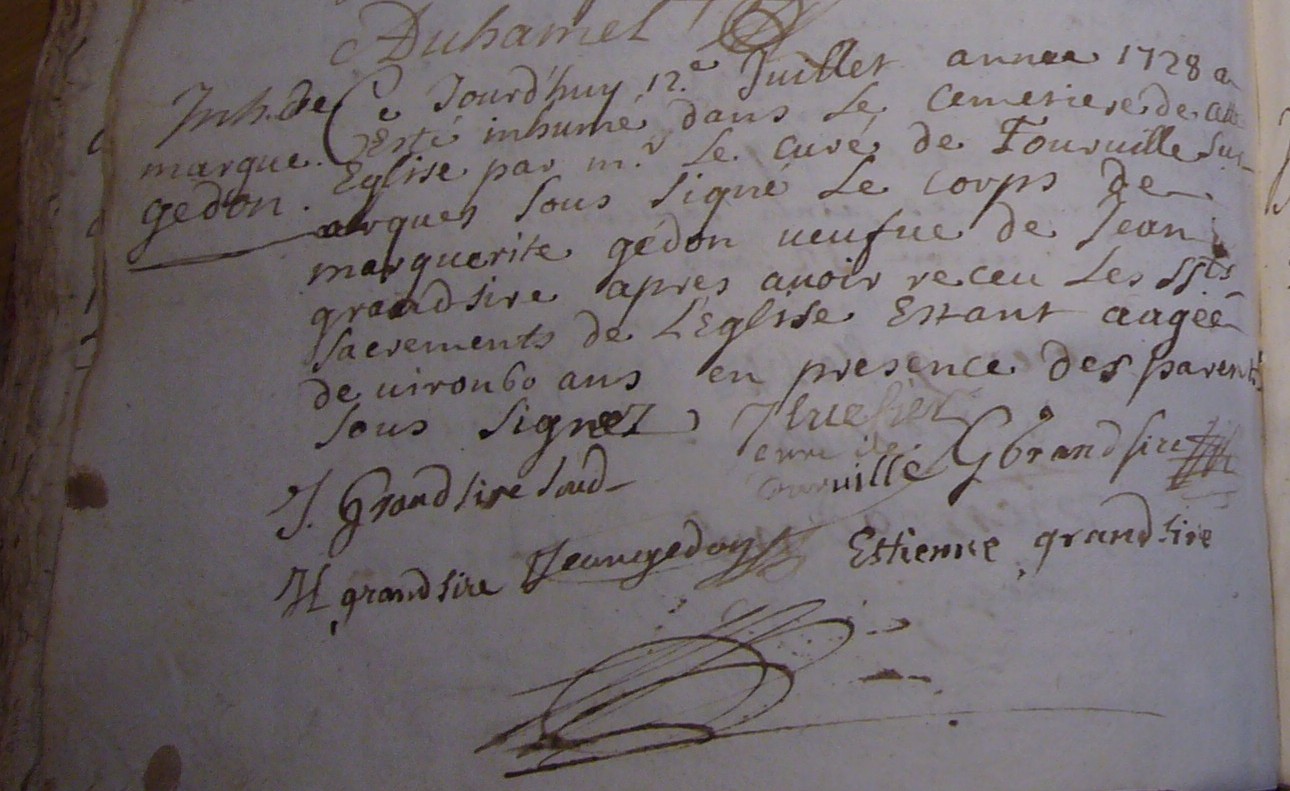 Duhamel
Inh. de
marque.
gédon.
Ce Jourd'huy 12.e Juillet année 1728 a
Esté inhumé dans Le Cemetiere de cette
Eglise par m.r Le curé de Tourville Sur
arques Sous Signé Le Corps de
marguerite gédon ueufue de Jean
grandsire apres auoir receu Les SSts
Sacrements de L'Eglise Estant aagée
de uiron 60 ans en presence des parents
Sous Signez
J. Grandsire
ville G Grandsire
H grandsire Jean gedon Estienne grandsire